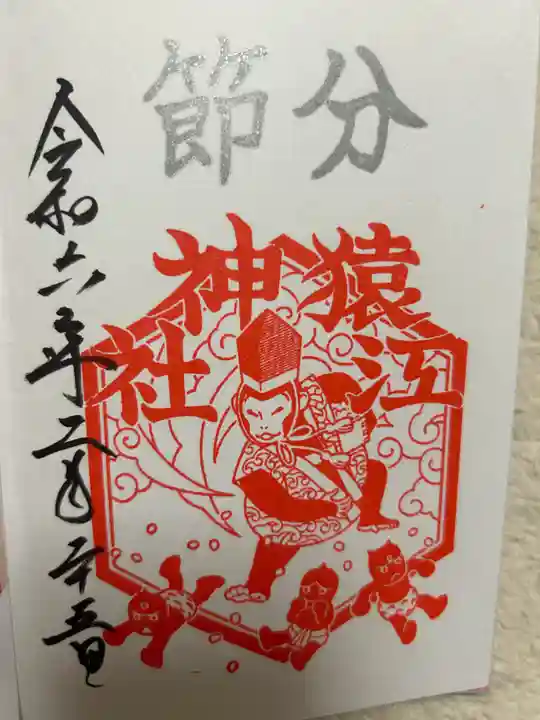 節分
猿江神社
令和六年二月二十五日